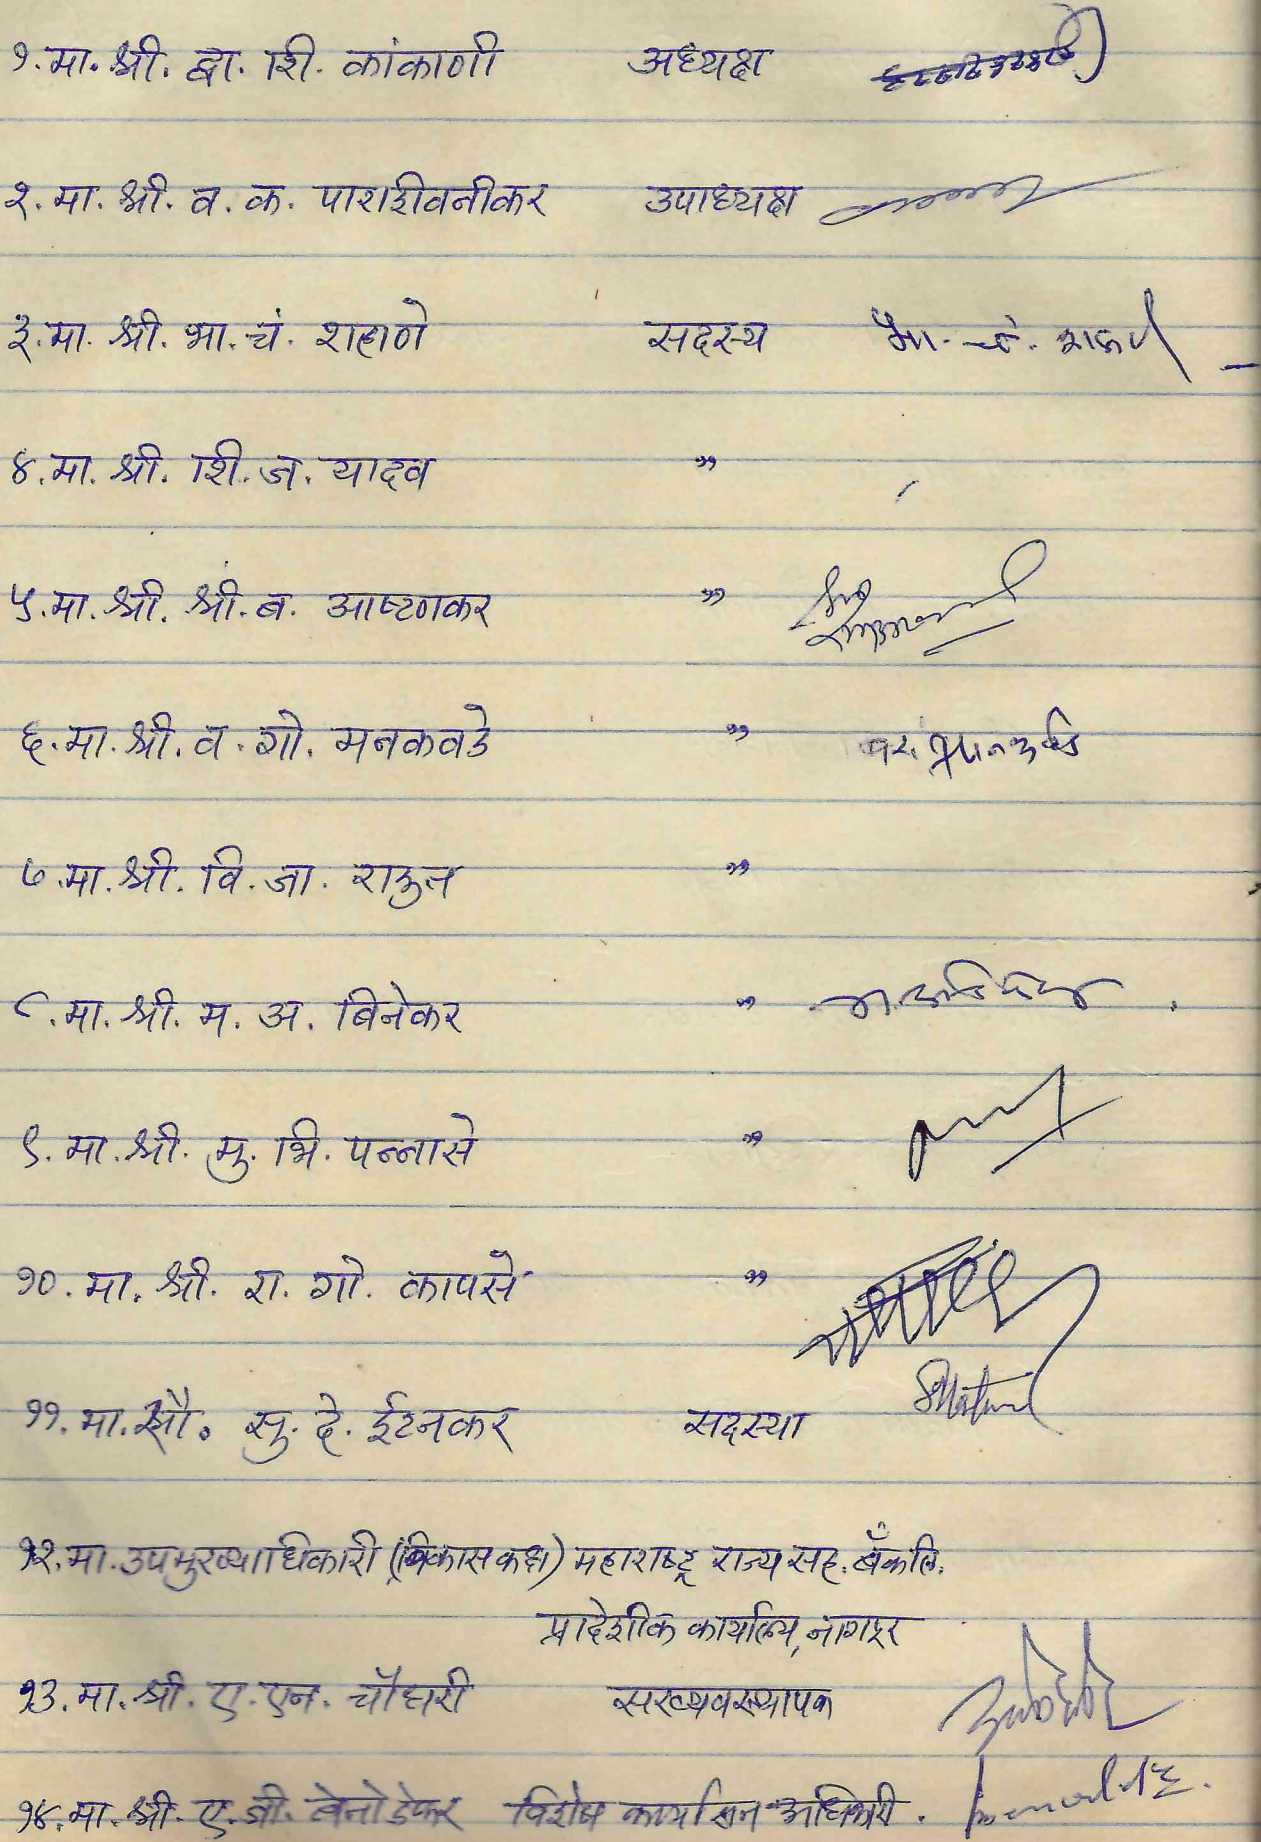 १. मा. श्री. द्वा. शि. कांकाणी अध्यक्ष
२. मा. श्री. व. क. पाराशीवनीकर उपाध्यक्ष
३. मा. श्री. भा. चं. शहाणे सदस्य भा. चं. शहाणे
४. मा. श्री. शि. ज. यादव "
५. मा. श्री. श्री. ब. आष्टणकर "
६. मा. श्री. व. गो. मनकवडे "
७. मा. श्री. वि. जा. राऊत "
८. मा. श्री. म. अ. बिनेकर "
९. मा. श्री. मु. भि. पन्नासे "
१०. मा. श्री. रा. गो. कापसे "
११. मा. सौ. सु. दे. ईटनकर सदस्या
१२. मा. उपमुख्याधिकारी (विकास कक्ष) महाराष्ट्र राज्य सह. बँक लि.
प्रादेशीक कार्यालय, नागपूर
१३. मा. श्री. ए. एन. चौधरी सरव्यवस्थापक
१४. मा. श्री. ए. बी. बेनोडेकर विशेष कार्यासन अधिकारी.